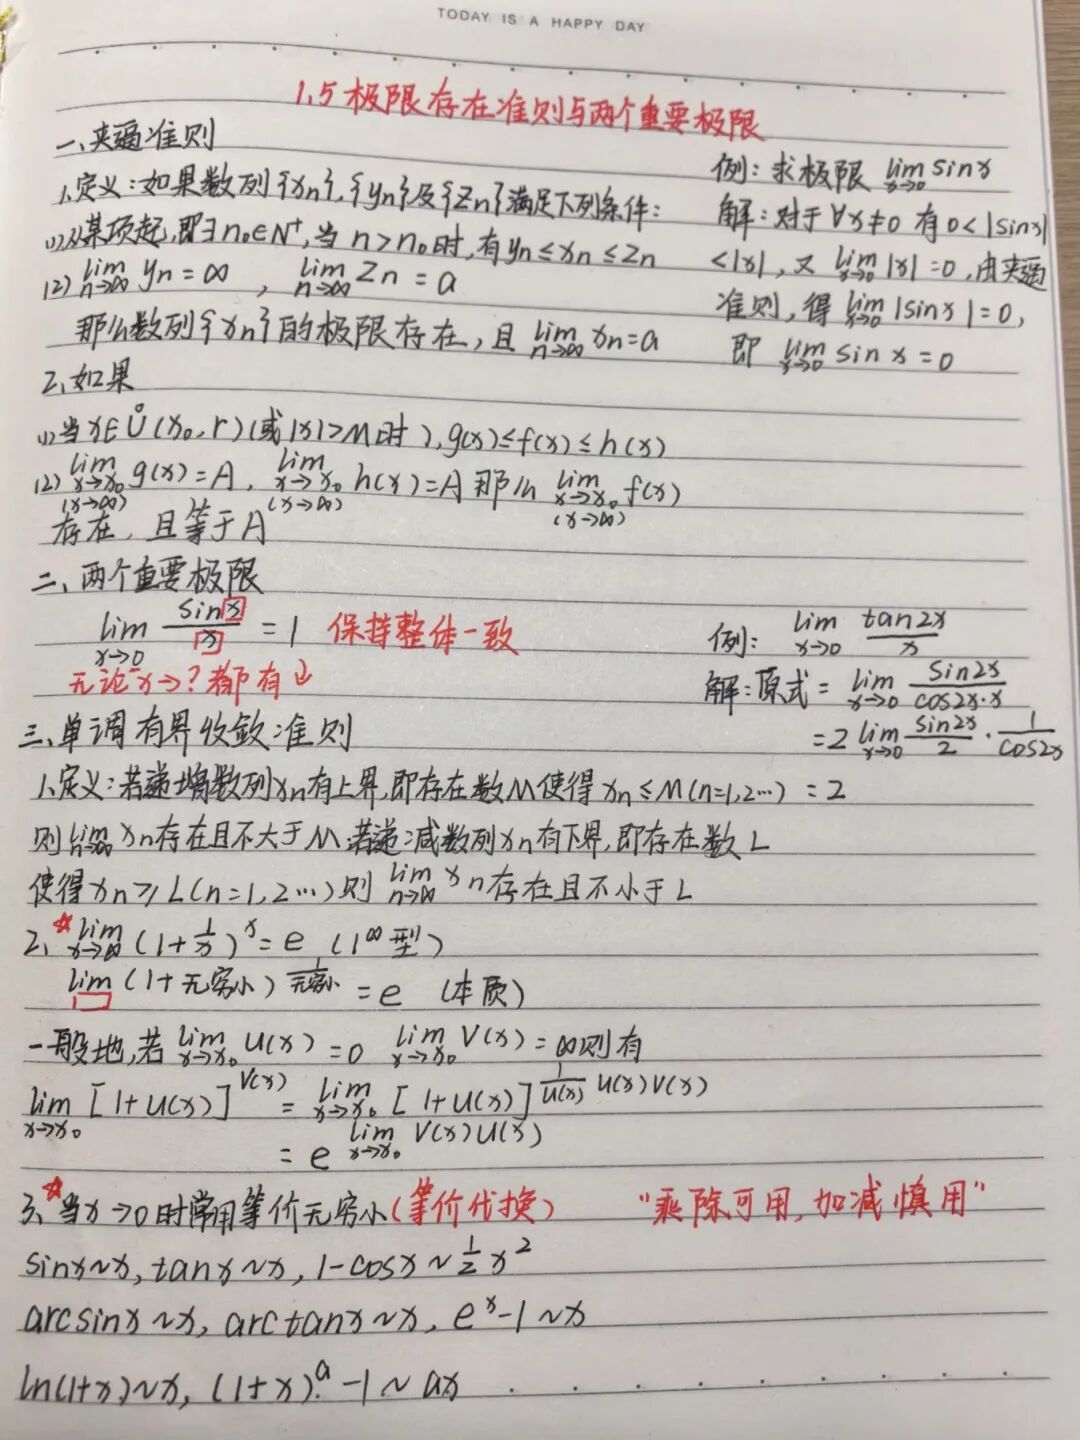 TODAY IS A HAPPY DAY
1.5 极限存在准则与两个重要极限
一、夹逼准则
1、定义:如果数列{xn},{yn}及{zn}满足下列条件:
(1)从某项起,即∃n₀∈N⁺,当n>n₀时,有yn≤xn≤zn
(2) lim n→∞ yn=∞, lim n→∞ zn=a
那么数列{xn}的极限存在,且 lim n→∞ xn=a
例:求极限 lim x→0 sinx
解:对于∀x≠0 有0<|sinx|
<|x|,又 lim x→0 |x|=0,由夹逼
准则,得 lim x→0 |sinx|=0,
即 lim x→0 sin x=0
2、如果
(1)当x∈Ů(x₀,r)(或|x|>M时),g(x)≤f(x)≤h(x)
(2) lim x→x₀ (x→∞) g(x)=A, lim x→x₀ (x→∞) h(x)=A 那么 lim x→x₀ (x→∞) f(x)
存在,且等于A
二、两个重要极限
lim x→0 sinx/x = 1 保持整体一致
无论x→?都有↓
例: lim x→0 tan2x/x
解:原式= lim x→0 sin2x/cos2x·x
=2 lim x→0 sin2x/2 · 1/cos2x
=2
三、单调有界收敛准则
1、定义:若递增数列xn有上界,即存在数M使得xn≤M(n=1,2…)
则 lim n→∞ xn存在且不大于M,若递减数列xn有下界,即存在数L
使得xn≥L(n=1,2…)则 lim n→∞ xn存在且不小于L
2、☆ lim x→∞ (1+1/x)^x=e (1^∞型)
lim □ (1+无穷小)^(1/无穷小) =e (本质)
一般地,若 lim x→x₀ u(x)=0 lim x→x₀ V(x)=∞则有
lim x→x₀ [1+u(x)]^V(x) = lim x→x₀ [1+u(x)]^(1/u(x) u(x)V(x))
= e^(lim x→x₀ V(x)u(x))
3、☆当x→0时常用等价无穷小(等价代换) “乘除可用,加减慎用”
sinx~x, tanx~x, 1-cosx~1/2 x²
arcsinx~x, arctanx~x, e^x-1~x
ln(1+x)~x, (1+x)^a-1~ax